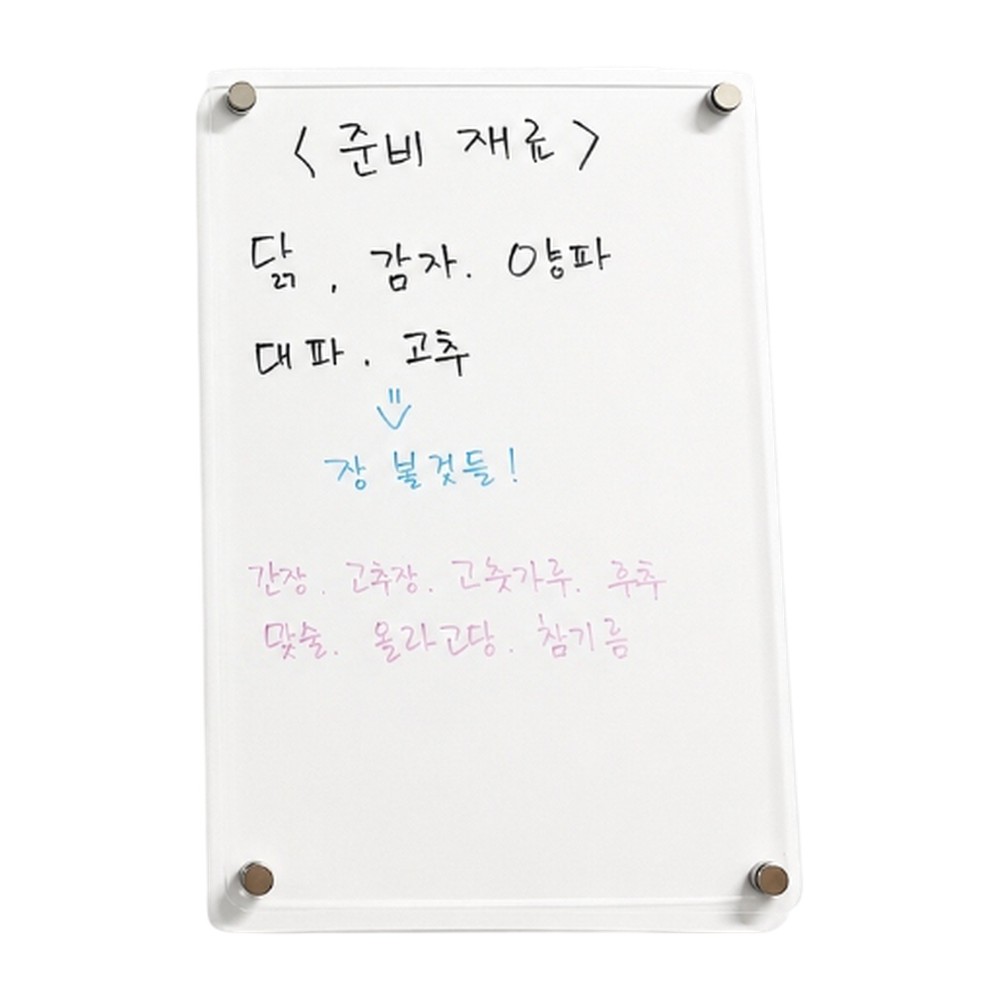 <준비 재료>
닭, 감자. 양파
대파. 고추
장 볼것들!
간장. 고추장. 고춧가루. 후추
맛술. 올라고당. 참기름